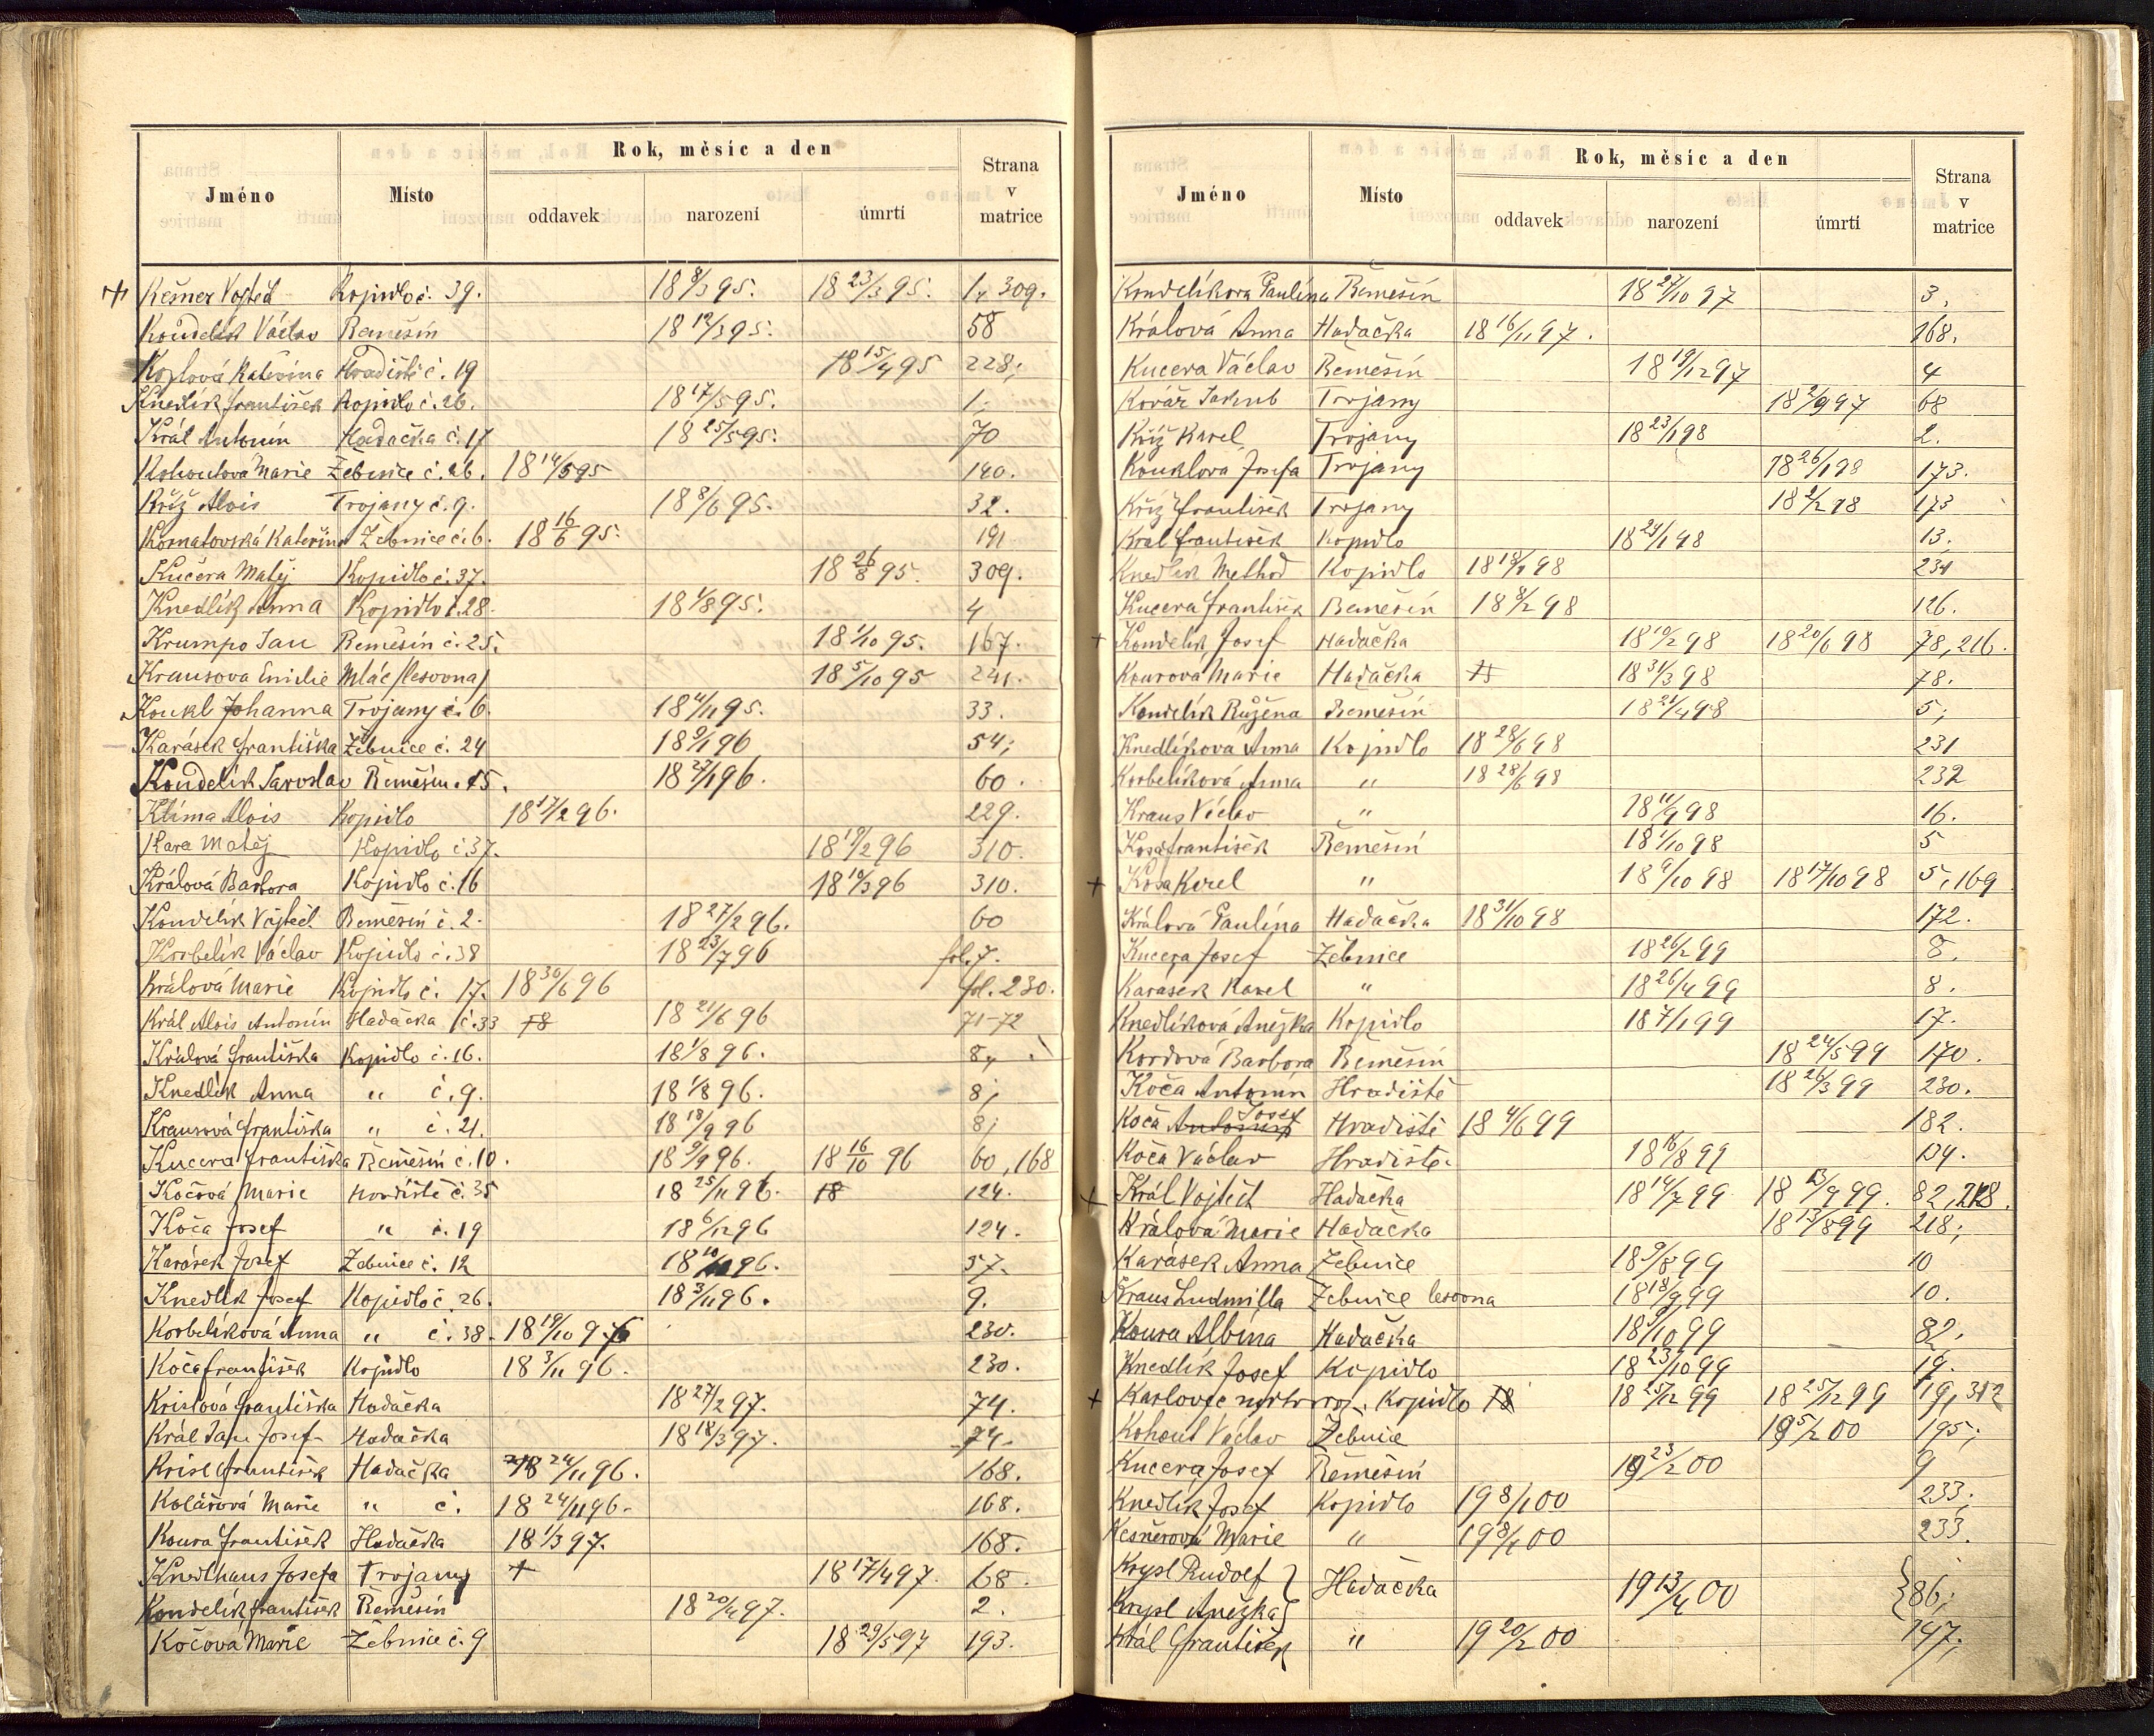 Rok, měsíc a den
Jméno Místo oddavek narození úmrtí Strana v matrice
Kešner Vojtěch Kopidlo č. 39. 18 8/3 95. 18 23/3 95. 1, 309.
Koudelík Václav Řemešín 18 12/3 95. 58
Kozlová Kateřina Hradiště č. 19 18 15/4 95 228;
Knedlík František Kopidlo č. 26. 18 17/5 95. 1.
Král Antonín Hadačka č. 17 18 25/5 95. 70
Kohoutová Marie Žebnice č. 26. 18 14/5 95 140.
Kříž Alois Trojany č. 9. 18 8/6 95. 32.
Kornatovská Kateřina Žebnice č. 6. 18 16/6 95. 191
Kučera Matěj Kopidlo č. 37. 18 26/8 95. 309.
Knedlík Anna Kopidlo č. 28. 18 1/8 95. 4
Krumpo Jan Řemešín č. 25. 18 1/10 95. 167.
Krausova Emilie Mláč /lesovna/ 18 5/10 95 241.
Koukl Johanna Trojany č. 6. 18 4/11 95. 33.
Karásek Františka Žebnice č. 24 18 9/1 96 54;
Koudelík Jaroslav Řemešín. 15. 18 27/1 96. 60.
Klíma Alois Kopidlo 18 17/2 96. 229.
Kara Matěj Kopidlo č. 37. 18 19/2 96 310.
Králová Barbora Kopidlo č. 16 18 10/3 96 310.
Koudelík Vojtěch Řemešín č. 2. 18 27/2 96. 60
Korbelík Václav Kopidlo č. 38 18 23/7 96 fol. 7.
Králová Marie Kopidlo č. 17. 18 30/6 96 fol. 230.
Král Alois Antonín Hadačka č. 33 18 18 21/6 96 71-72
Králová Františka Kopidlo č. 16. 18 1/8 96. 8,
Knedlík Anna " č. 9. 18 1/8 96. 8;
Krausová Františka " č. 21. 18 18/9 96 8;
Kucera Františka Řemešín č. 10. 18 9/9 96. 18 16/10 96 60, 168
Kočová Marie Hradiště č. 35 18 25/11 96. 18 124.
Koča Josef " č. 19 18 6/12 96 124.
Karásek Josef Žebnice č. 12 57.
Knedlík Josef Kopidlo č. 26. 18 3/11 96. 9.
Korbelíková Anna " č. 38. 18 19/10 96 230.
Koča František Kopidlo 18 3/11 96. 230.
Kristová Františka Hadačka 18 27/2 97. 74.
Král Jan Josef Hadačka 18 18/3 97. 74.
Krisl František Hadačka 18 24/11 96. 168.
Kolářová Marie " č. 18 24/11 96. 168.
Koura František Hadačka 18 1/3 97. 168.
Knedlhans Josefa Trojany + 18 17/4 97. 68.
Kondelík František Řemešín 18 20/4 97. 2.
Kočová Marie Žebnice č. 9 18 29/5 97 193.
Rok, měsíc a den
Jméno Místo oddavek narození úmrtí Strana v matrice
Kondelíkova Paulína Řemešín 18 27/10 97 3.
Králová Anna Hadačka 18 16/11 97. 168.
Kucera Václav Řemešín 18 19/12 97 4
Kovář Jakub Trojany 18 2/9 97 68
Kříž Karel Trojany 18 23/1 98 2.
Kouklova Josefa Trojany 18 26/1 98 173.
Kříž František Trojany 18 2/2 98 173
Král František Kopidlo 18 24/1 98 13.
Knedlík Method Kopidlo 18 18/1 98 231
Kucera František Řemešín 18 8/2 98 126.
+ Kondelík Josef Hadačka 18 19/2 98 18 20/6 98 78, 216.
Kourová Marie Hadačka 18 31/3 98 78.
Kondelík Růžena Řemešín 18 21/4 98 5;
Knedlíkova Anna Kopidlo 18 28/6 98 231
Korbelíková Anna " 18 28/6 98 232
Kraus Václav " 18 11/9 98 16.
Kosa František Řemešín 18 1/10 98 5
+ Kosa Karel " 18 9/10 98 18 17/10 98 5, 169
Králová Paulína Hadačka 18 31/10 98 172.
Kucera Josef Žebnice 18 26/2 99 8.
Karásek Karel " 18 26/4 99 8.
Knedlíková Anežka Kopidlo 18 7/1 99 17.
Kordová Barbora Řemešín 18 24/5 99 170.
Koča Antonín Hradiště 18 26/3 99 230.
Koča Antonín Josef Hradiště 18 4/6 99 182.
Koča Václav Hradiště. 18 16/8 99 134.
+ Král Vojtěch Hadačka 18 14/7 99 18 13/9 99. 82, 218.
Králová Marie Hadačka 18 13/8 99 218;
Karásek Anna Žebnice 18 9/8 99 10
Kraus Ludmilla Žebnice lesovna 18 18/9 99 10.
Koura Albína Hadačka 82.
Knedlík Josef Kopidlo 18 23/10 99 19.
+ Karlovec Kopidlo 18 18 25/12 99 18 25/12 99 19, 312
Kohout Václav Žebnice 19 5/2 00 195;
Kucera Josef Řemešín 19 23/2 00 9
Knedlík Josef Kopidlo 19 8/1 00 233.
Kesnerová Marie " 19 8/1 00 233.
Krysl Rudolf } Hadačka 19 13/4 00 {86;
Krysl Anežka
Král František " 19 20/2 00 147.